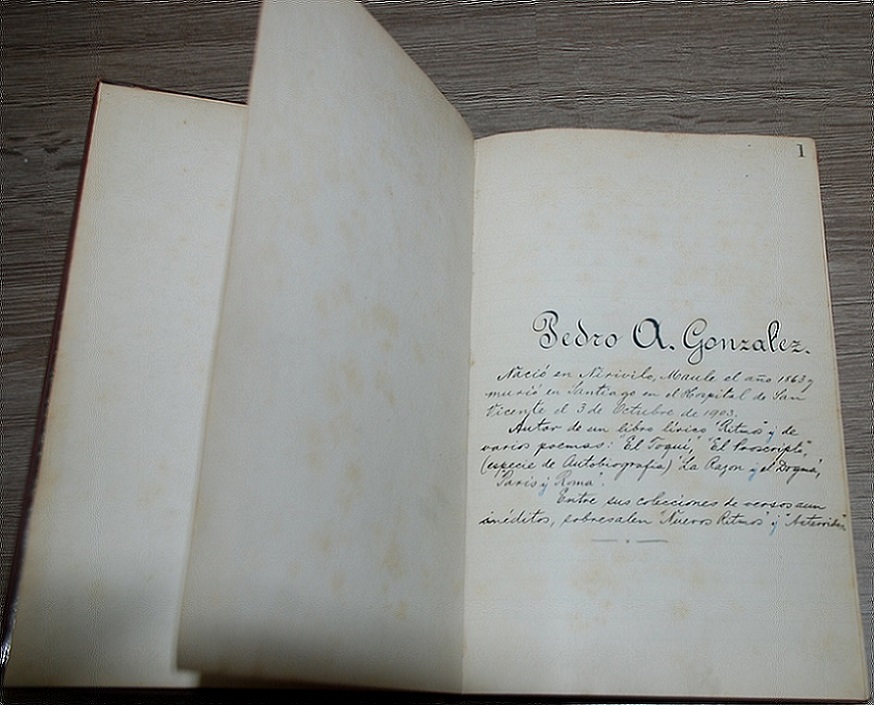 1
Pedro A. Gonzalez.
Nació en Nirivilo, Maule el año 1863 y
murió en Santiago en el Hospital de San
Vicente el 3 de Octubre de 1903.
Autor de un libro lírico "Ritmos" y de
varios poemas: "El Toqui," "El Proscripto",
(especie de Autobiografia) "La Razon y el Dogma",
"Paris y Roma".
Entre sus colecciones de versos aun
inéditos, sobresalen "Nuevos Ritmos" y "Asteroides"